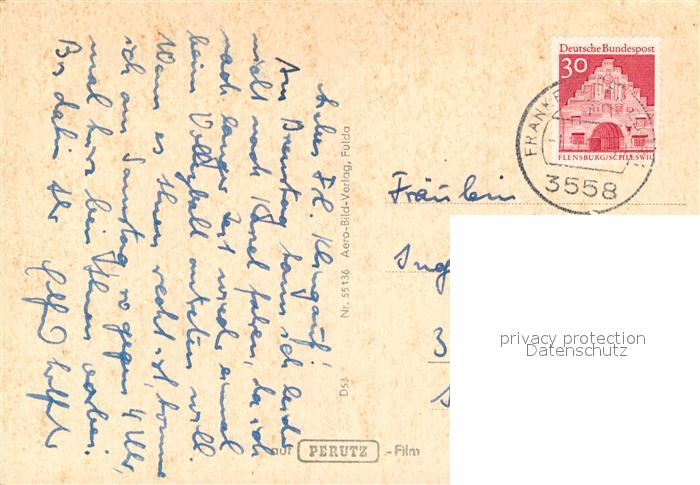 Liebes Frl. Klingauf!
Am Dienstag kann ich leider
nicht nach Kassel fahren, da ich
nach langer Zeit wieder einmal
beim Volleyball antreten will.
Wenn es Ihnen recht ist, komme
ich am Samstag so gegen 4 Uhr,
mal kurz bei Ihnen vorbei.
Bis dahin Ihr
Nr. 55136 Aero-Bild-Verlag, Fulda
D53
auf PERUTZ -Film
Deutsche Bundespost
30
FLENSBURG/SCHLESWIG
FRANKE
3558
Fräulein
Ing
3
privacy protection
Datenschutz